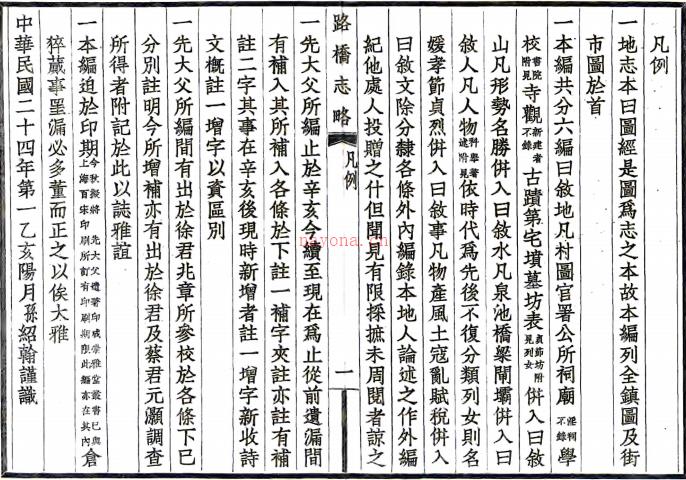 凡例
一地志本曰圖經是圖爲志之本故本編列全鎮圖及街
市圖於首
一本編共分六編曰敘地凡村圖官署公所祠廟淫祠不錄學
校書院附見寺觀新建者不錄古蹟第宅墳墓坊表貞節坊附見列女併入曰敘
山凡形勢名勝併入曰敘水凡泉池橋梁閘壩併入曰
敘人凡人物科舉著述附見依時代爲先後不復分類列女則名
媛孝節貞烈併入曰敘事凡物產風土寇亂賦稅併入
曰敘文除分隸各條外內編錄本地人論述之作外編
紀他處人投贈之什但聞見有限採摭未周閱者諒之
路橋志略
凡例
一
一先大父所編止於辛亥今續至現在爲止從前遺漏間
有補入其所補入各條於下註一補字夾註亦註有補
註二字其事在辛亥後現時新增者註一增字新收詩
文概註一增字以資區別
一先大父所編間有出於徐君兆章所參校於各條下已
分別註明今所增補亦有出於徐君及蔡君元灝調查
所得者附記於此以誌雅誼
一本編迫於印期今秋擬將先大父遺著印成崇雅堂叢書已與上海百宋印刷所訂有印刷期限此編亦在其內倉
猝蕆事罣漏必多董而正之以俟大雅
中華民國二十四年第一乙亥陽月孫紹翰謹識
nayona.cn